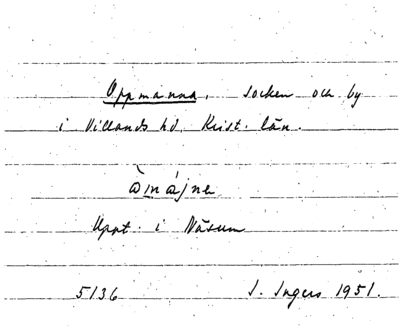 Oppmanna, socken och by
i Villands hd, Krist. län.
àmájne
Uppt. i Näsum
5136 I. Ingers 1951.